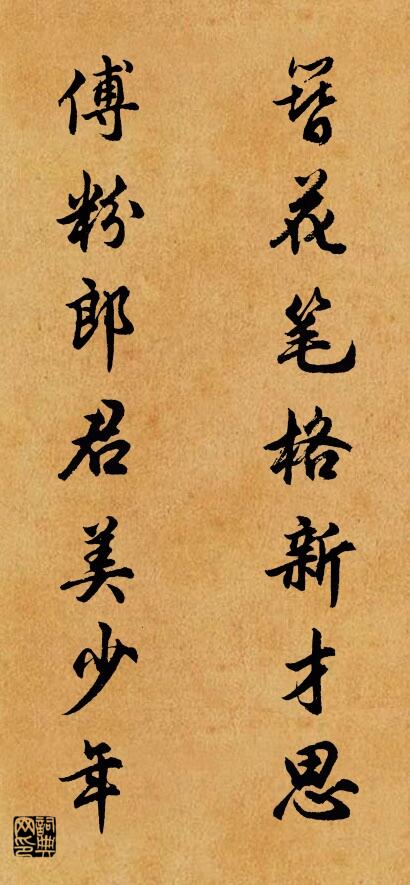 簪花笔格新才思
傅粉郎君美少年
詞典网印